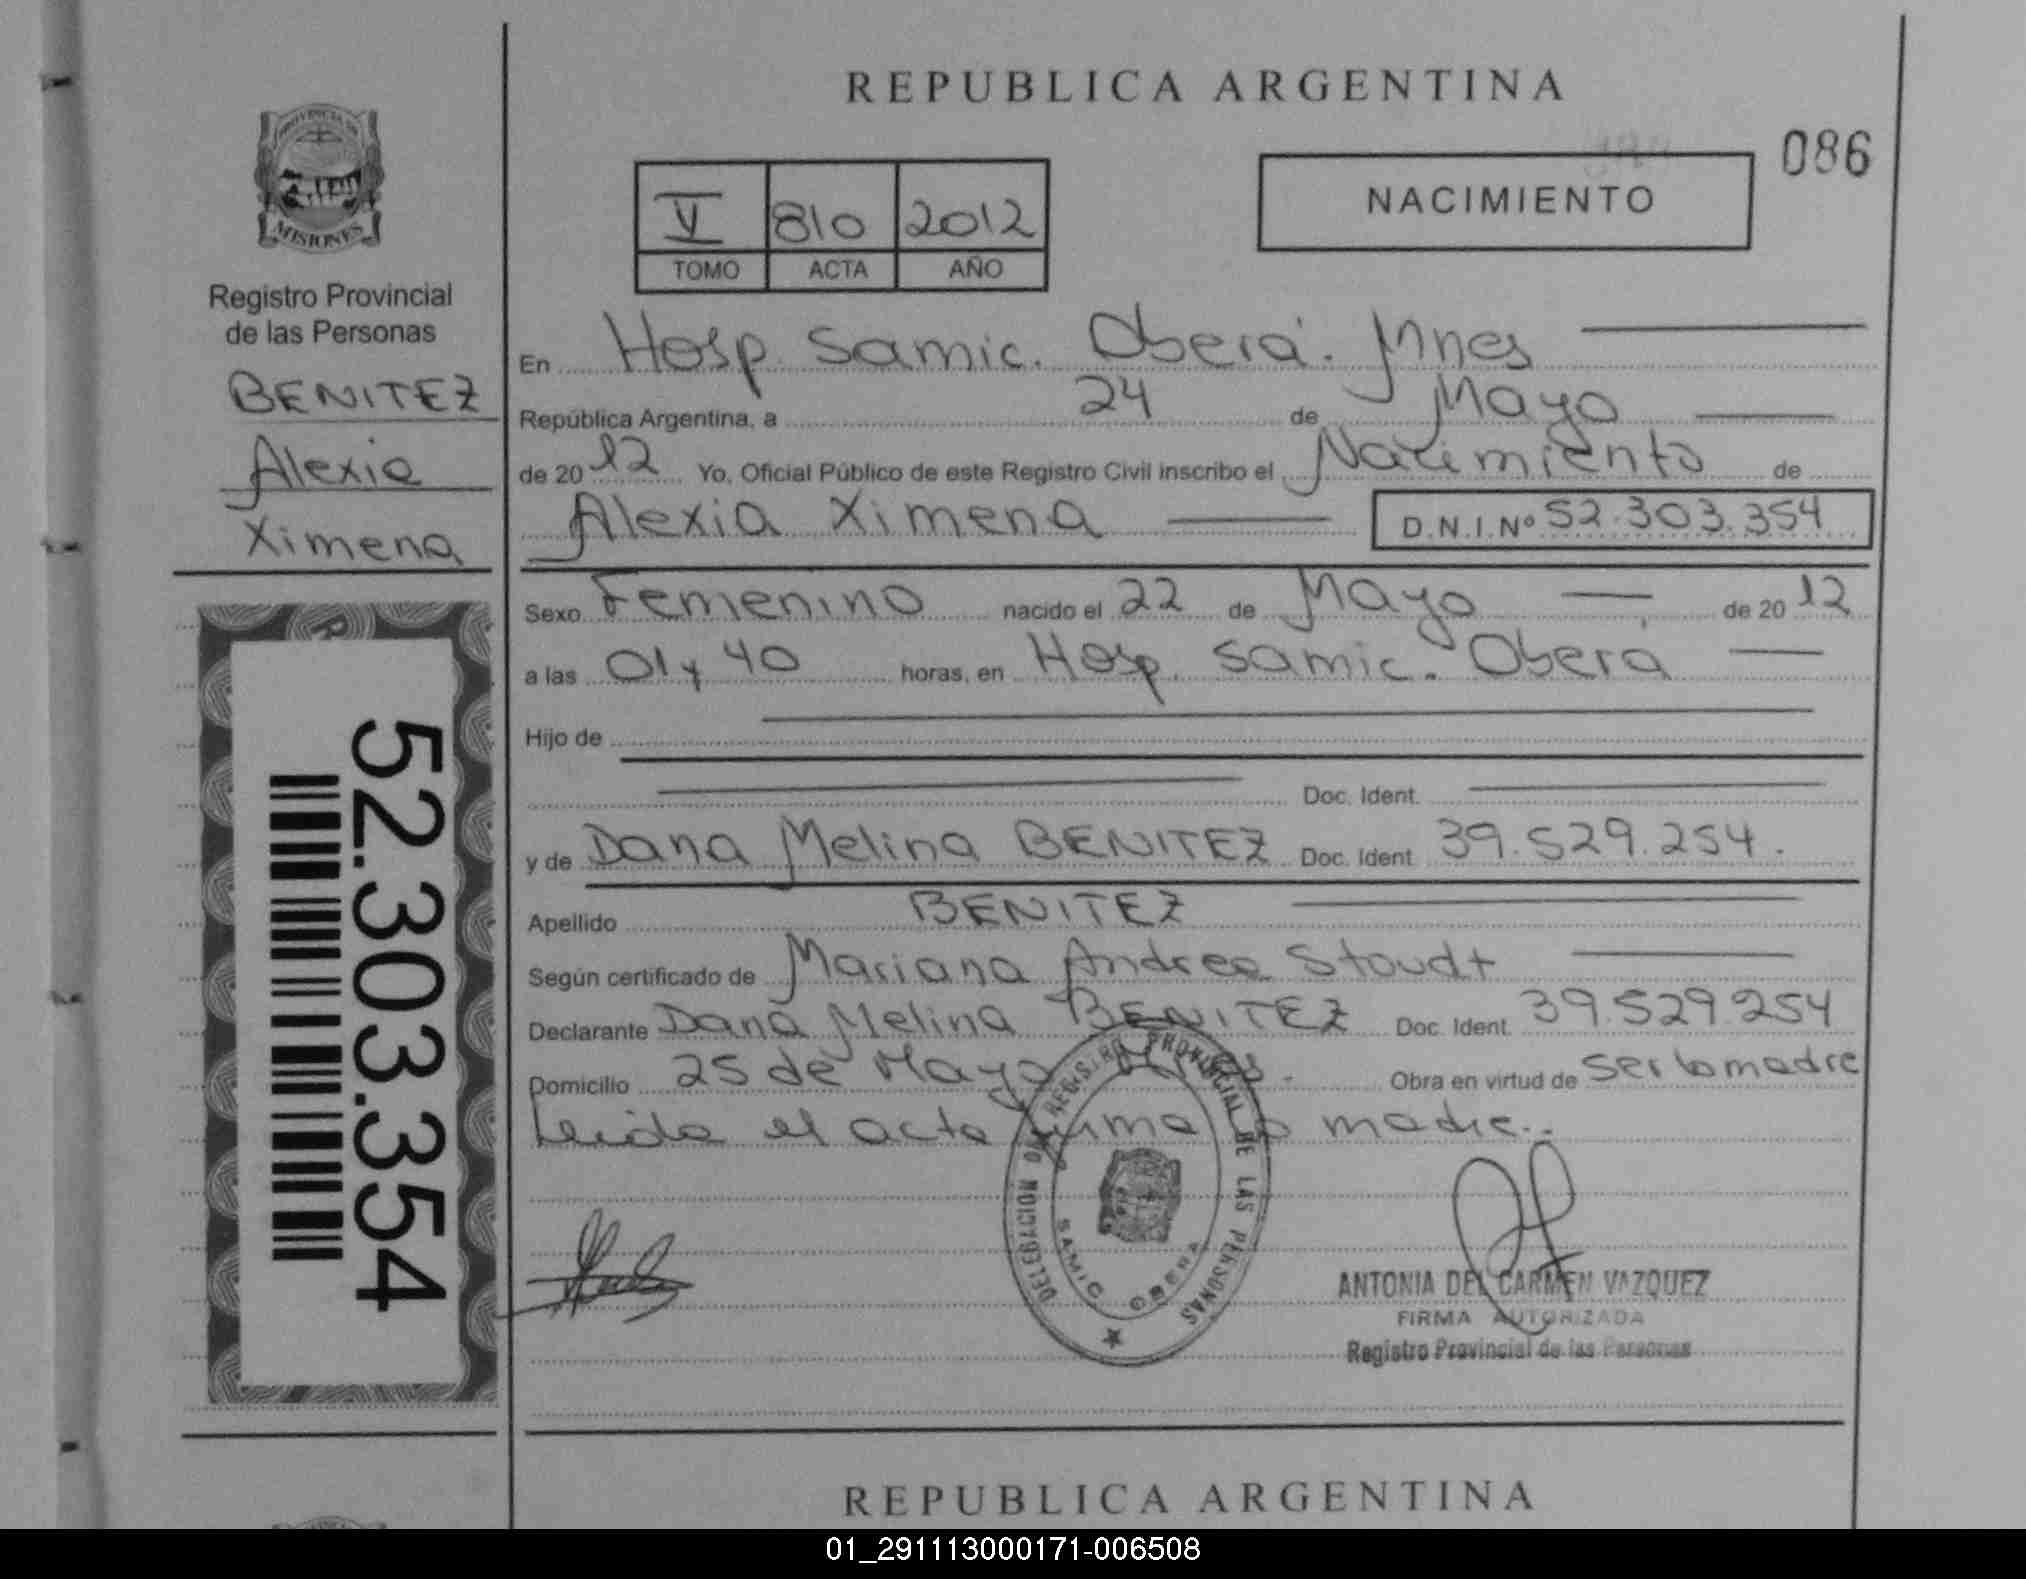 REPUBLICA ARGENTINA
086
NACIMIENTO
V 810 2012
TOMO ACTA AÑO
PROVINCIA DE
MISIONES
Registro Provincial
de las Personas
BENITEZ
Alexia
Ximena
52.303.354
En Hosp. Samic. Oberá. Mnes
República Argentina, a 24 de Mayo
de 2012 Yo, Oficial Público de este Registro Civil inscribo el Nacimiento de
Alexia Ximena D.N.I.Nº 52.303.354
Sexo Femenino nacido el 22 de Mayo de 2012
a las 01 y 40 horas, en Hosp. Samic. Oberá
Hijo de
Doc. Ident.
y de Dana Melina BENITEZ Doc. Ident 39.529.254.
Apellido BENITEZ
Según certificado de Mariana Andrea Stoudt
Declarante Dana Melina BENITEZ Doc. Ident. 39.529.254
Domicilio 25 de Mayo Mnes. Obra en virtud de ser la madre
Leida el acta firma la madre.
DELEGACION DEL REGISTRO PROVINCIAL DE LAS PERSONAS
SAMIC OBERA
ANTONIA DEL CARMEN VAZQUEZ
FIRMA AUTORIZADA
Registro Provincial de las Personas
REPUBLICA ARGENTINA
01_291113000171-006508